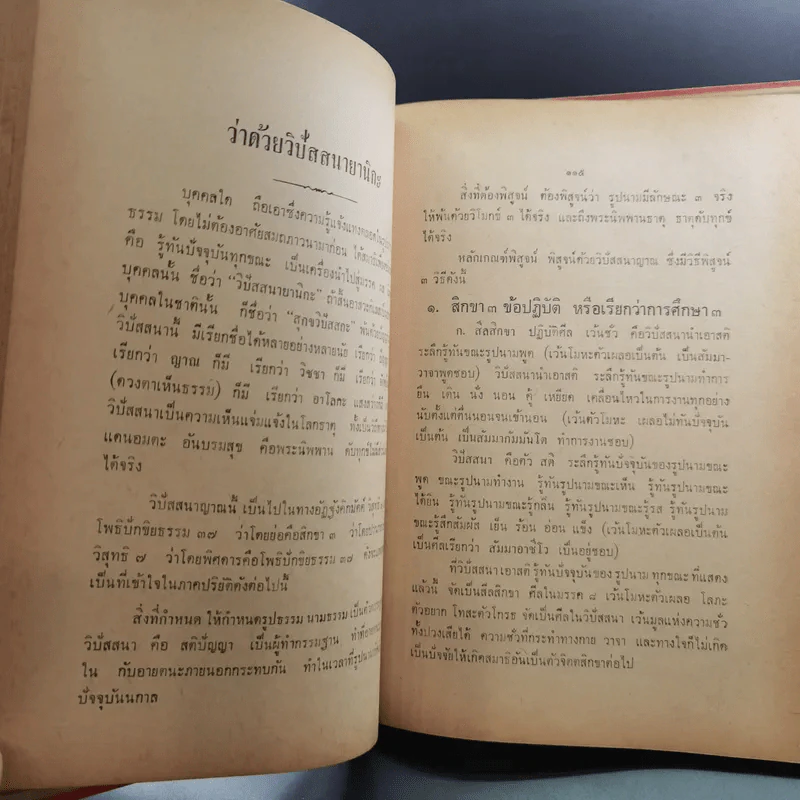 ว่าด้วยวิปัสสนายานิกะ
บุคคลใด ถือเอาซึ่งความรู้แจ้งแทงตลอด
ธรรม โดยไม่ต้องอาศัยสมถภาวนามาก่อน
คือ รู้ทันปัจจุบันทุกขณะ เป็นเครื่องนำไปสู่มรรค
บุคคลนั้น ชื่อว่า “วิปัสสนายานิกะ”
บุคคลในชาตินั้น ก็ชื่อว่า “สุกขวิปัสสกะ”
วิปัสสนานี้ มีเรียกชื่อได้หลายอย่างหลายนัย เรียกว่า
เรียกว่า ญาณ ก็มี เรียกว่า วิชชา ก็มี เรียกว่า
(ดวงตาเห็นธรรม) ก็มี เรียกว่า อาโลกะ
วิปัสสนาเป็นความเห็นแจ่มแจ้งในโลกธาตุ
แดนอมตะ อันบรมสุข คือพระนิพพาน
ได้จริง
วิปัสสนาญาณนี้ เป็นไปในทางอัฏฐังคิกมัคค์
โพธิปักขิยธรรม ๓๗ ว่าโดยย่อคือสิกขา ๓
วิสุทธิ ๗ ว่าโดยพิศดารคือโพธิปักขิยธรรม ๓๗
เป็นที่เข้าใจในภาคปริยัติดังต่อไปนี้
สิ่งที่กำหนด ให้กำหนดรูปธรรม นามธรรม
วิปัสสนา คือ สติปัญญา เป็นผู้ทำกรรมฐาน
ใน กับอายตนะภายนอกกระทบกัน ทำในเวลาที่รูปนาม
ปัจจุบันนกาล
๑๑๕
สิ่งที่ต้องพิสูจน์ ต้องพิสูจน์ว่า รูปนามมีลักษณะ ๓ จริง
ให้พ้นด้วยวิโมกข์ ๓ ได้จริง และถึงพระนิพพานธาตุ ธาตุดับทุกข์
ได้จริง
หลักเกณฑ์พิสูจน์ พิสูจน์ด้วยวิปัสสนาญาณ ซึ่งมีวิธีพิสูจน์
๓ วิธีดังนี้
๑. สิกขา ๓ ข้อปฏิบัติ หรือเรียกว่าการศึกษา ๓
ก. สีลสิกขา ปฏิบัติศีล เว้นชั่ว คือวิปัสสนานำเอาสติ
ระลึกรู้ทันขณะรูปนามพูด (เว้นโมหะตัวเผลอเป็นต้น เป็นสัมมา-
วาจาพูดชอบ) วิปัสสนานำเอาสติ ระลึกรู้ทันขณะรูปนามทำการ
ยืน เดิน นั่ง นอน คู้ เหยียด เคลื่อนไหวในการงานทุกอย่าง
นับตั้งแต่ตื่นนอนจนเข้านอน (เว้นตัวโมหะ เผลอไม่ทันปัจจุบัน
เป็นต้น เป็นสัมมากัมมันโต ทำการงานชอบ)
วิปัสสนา คือตัว สติ ระลึกรู้ทันปัจจุบันของรูปนามขณะ
พูด ขณะรูปนามทำงาน รู้ทันรูปนามขณะเห็น รู้ทันรูปนามขณะ
ได้ยิน รู้ทันรูปนามขณะรู้กลิ่น รู้ทันรูปนามขณะรู้รส รู้ทันรูปนาม
ขณะรู้สึกสัมผัส เย็น ร้อน อ่อน แข็ง (เว้นโมหะตัวเผลอเป็นต้น
เป็นศีลเรียกว่า สัมมาอาชีโว เป็นอยู่ชอบ)
ที่วิปัสสนาเอาสติ รู้ทันปัจจุบันของรูปนาม ทุกขณะ ที่แสดง
แล้วนี้ จัดเป็นสีลสิกขา ศีลในมรรค ๘ เว้นโมหะตัวเผลอ โลภะ
ตัวอยาก โทสะตัวโกรธ จัดเป็นศีลในวิปัสสนา เว้นมูลแห่งความชั่ว
ทั้งปวงเสียได้ ความชั่วที่กระทำทางกาย วาจา และทางใจก็ไม่เกิด
เป็นปัจจัยให้เกิดสมาธิอันเป็นตัวจิตตสิกขาต่อไป